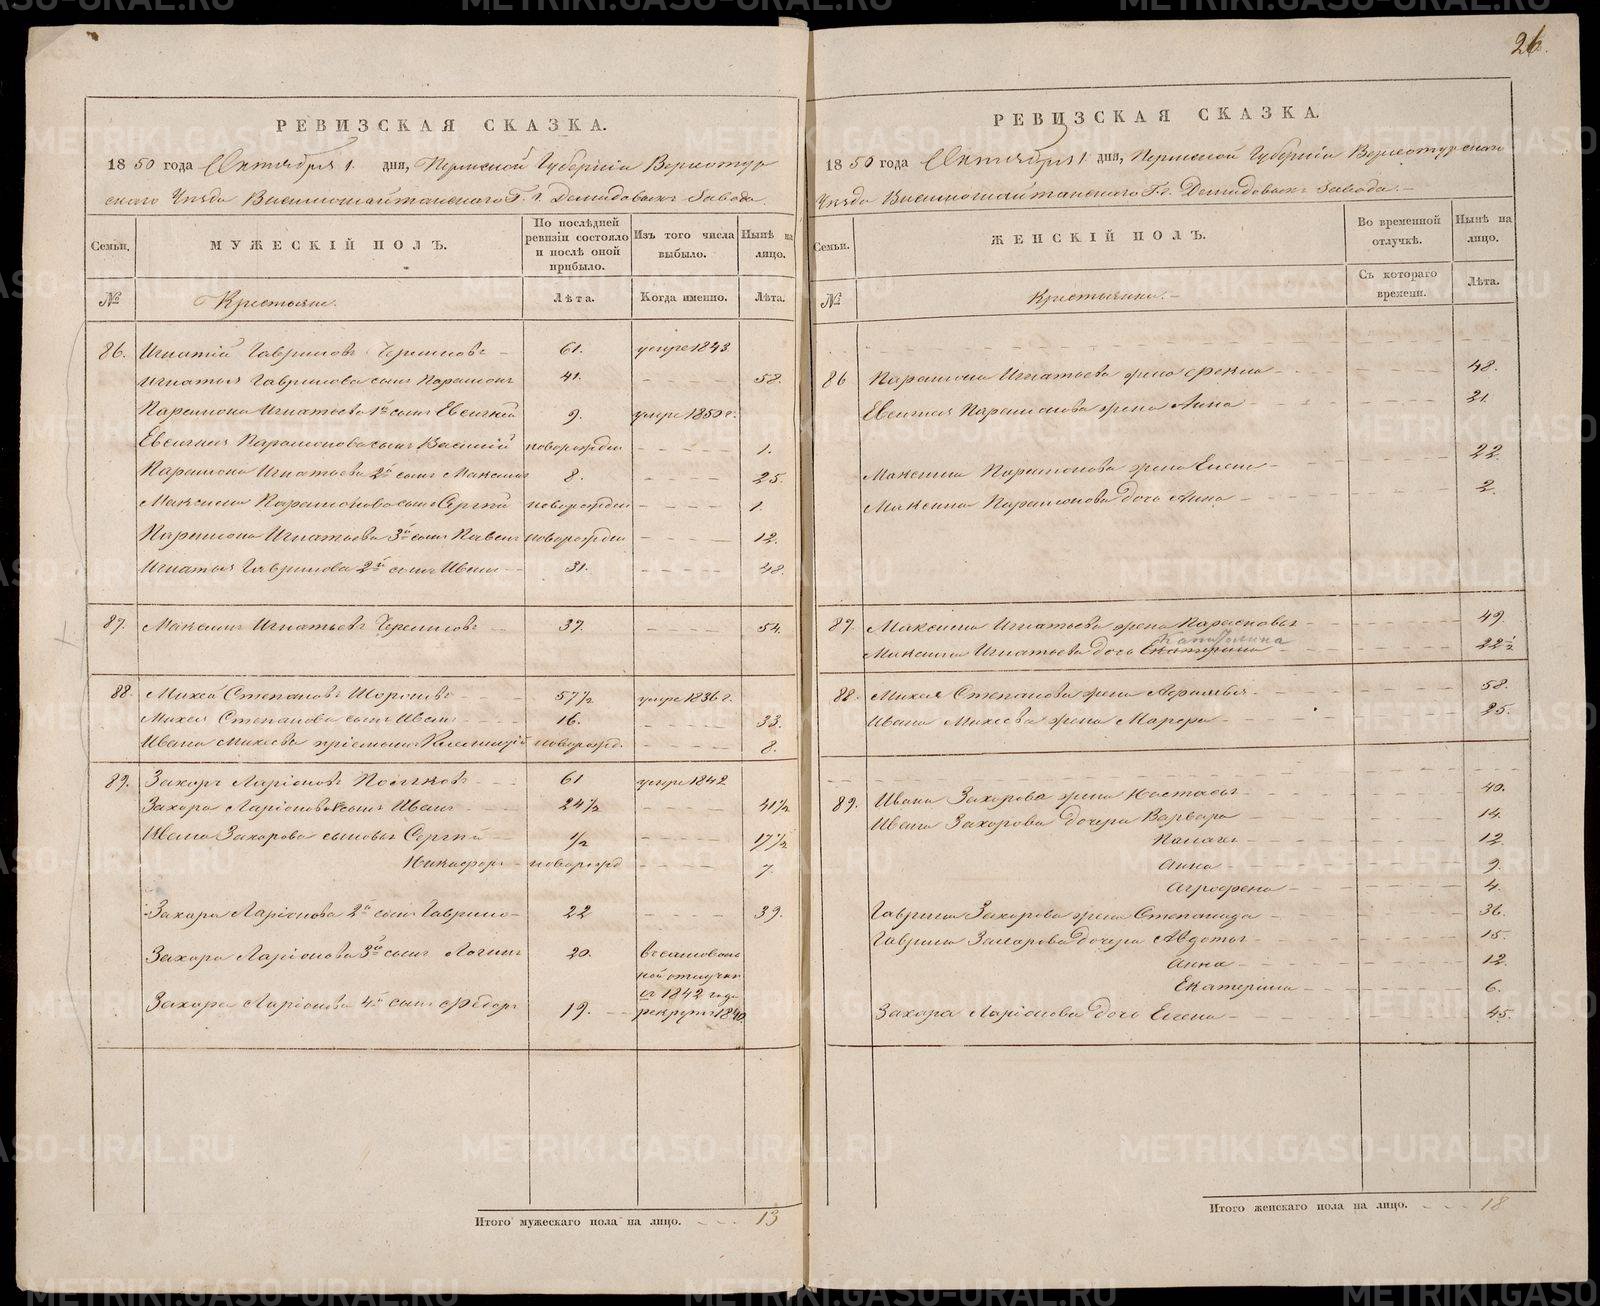 26.
РЕВИЗСКАЯ СКАЗКА.
1850 года Октября 1 дня, Пермской Губернiи Верхотур
скаго Уѣзда Висимошайтанскаго Г.г. Демидовыхъ Завода.
Семьи.
МУЖЕСКIЙ ПОЛЪ.
По послѣдней ревизiи состояло и послѣ оной прибыло.
Изъ того числа выбыло.
Нынѣ на лицо.
№
Крестьяне.
Лѣта.
Когда именно.
Лѣта.
86. Игнатiй Гавриловъ Черемновъ 61. умре 1843
Игнатья Гаврилова сынъ Парамонъ 41. 58.
Парамона Игнатьева 1й сынъ Евсигней 9. умре 1850 г.
Евсигнея Парамонова сынъ Василiй новорожден 1.
Парамона Игнатьева 2й сынъ Максимъ 8. 25.
Максима Парамонова сынъ Сергѣй новорожден 1.
Парамона Игнатьева 3й сынъ Павелъ новорожден 12.
Игнатья Гаврилова 2й сынъ Иванъ 31. 48.
87. Максимъ Игнатьевъ Черемновъ 37. 54.
88. Михей Степановъ 57½ умре 1836 г.
Михея Степанова сынъ Иванъ 16. 33.
Ивана Михеева прiемышъ новорожд. 8.
89. Захаръ Ларiоновъ Поляковъ 61 умре 1842
Захара Ларiонова сынъ Иванъ 24½ 41½
Ивана Захарова сыновья Сергѣй ½ 17½
Никифоръ новорожд 7.
Захара Ларiонова 2й сынъ Гаврило 22 39.
Захара Ларiонова 3й сынъ Логинъ 20. отлучки
съ 1842 года
Захара Ларiонова 4й сынъ Федоръ 19. рекрутъ 1840
Итого мужескаго пола на лицо. 13
РЕВИЗСКАЯ СКАЗКА.
1850 года Октября 1 дня, Пермской Губернiи Верхотурскаго
Уѣзда Висимошайтанскаго Г.г. Демидовыхъ Завода.
Семьи.
ЖЕНСКIЙ ПОЛЪ.
Во временной отлучкѣ.
Нынѣ на лицо.
№
Крестьянки.
Съ котораго времени.
Лѣта.
86 Парамона Игнатьева жена Фекла 48.
Евсигнея Парамонова жена Анна 21.
Максима Парамонова жена Елена 22
Максима Парамонова дочь Анна 2.
87 Максима Игнатьева жена Парасковья 49.
Капитолина
Максима Игнатьева дочь Екатерина 22½
88. Михея Степанова жена 58.
Ивана Михеева жена Марфа 25.
89. Ивана Захарова жена Настасья 40.
Ивана Захарова дочери Варвара 14.
Палагѣя 12.
Анна 9.
Агрофена 4.
Гаврила Захарова жена Степанида 36.
Гаврила Захарова дочери Авдотья 15.
Анна 12.
Екатерина 6.
Захара Ларiонова дочь Елена 45.
Итого женскаго пола на лицо. 18
METRIKI.GASO-URAL.RU